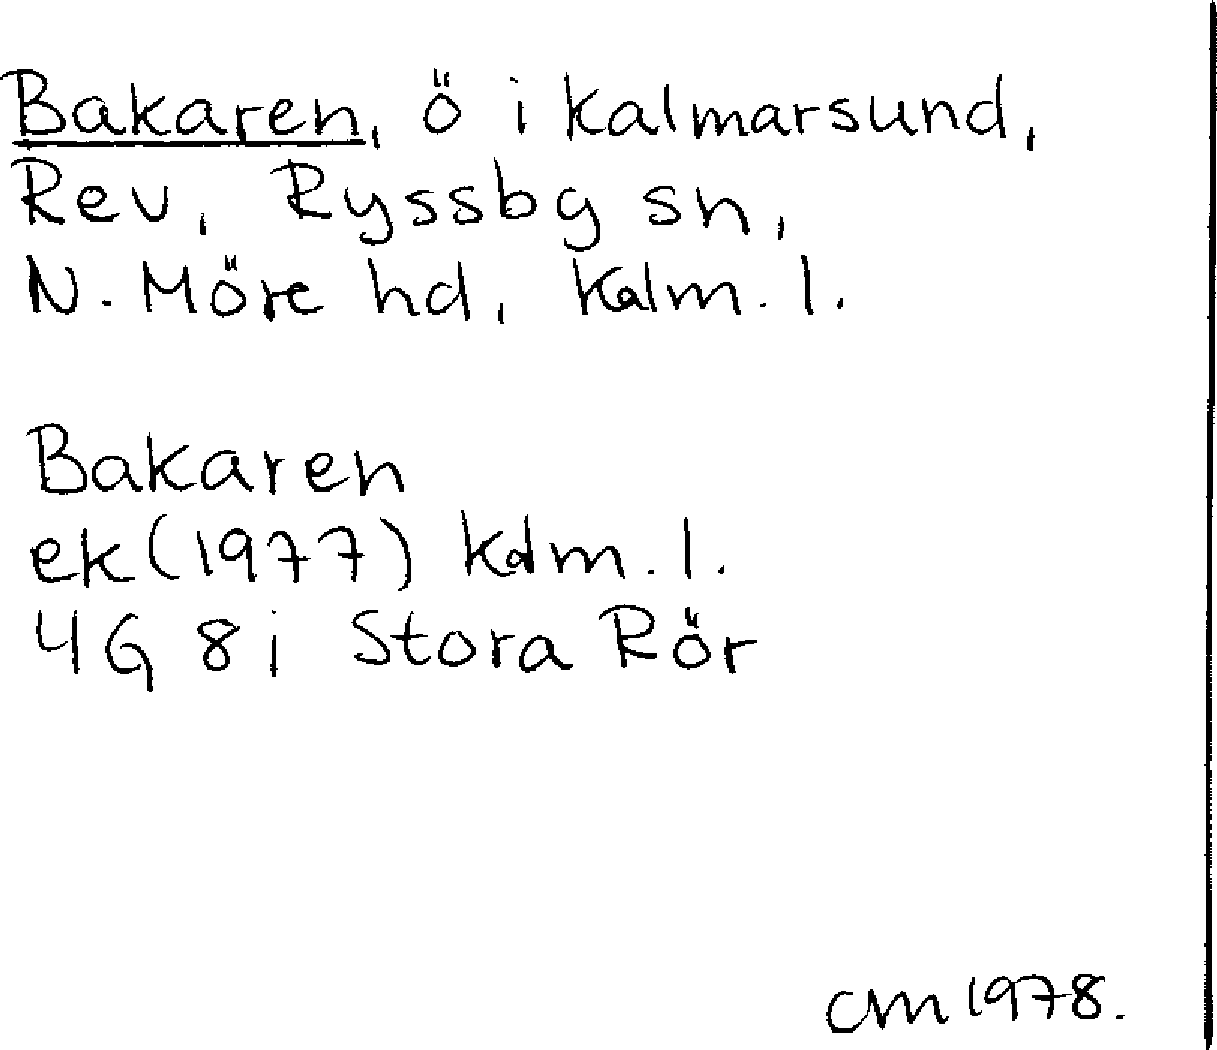 Bakaren, ö i Kalmarsund,
Rev, Ryssbg sn,
N. Möre hd, Kalm. l.
Bakaren
ek (1977) Kalm. l.
4G 8i Stora Rör
CM 1978.